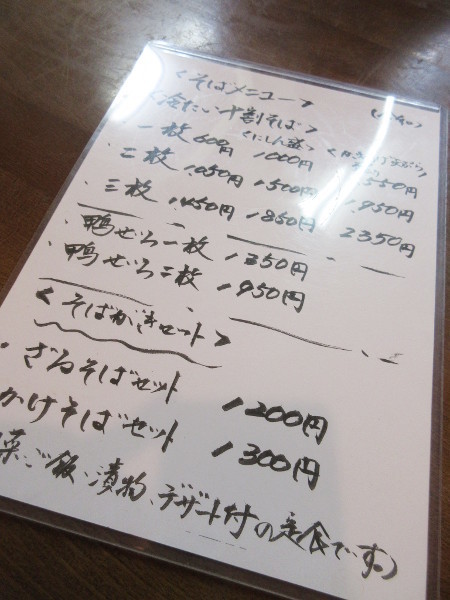 <そばメニュー>
<冷たい十割そば>
<にしん蕎>
・一枚 600円 1000円 1550円
・二枚 1050円 1500円 1950円
・三枚 1450円 1850円 2350円
・鴨せいろ一枚 1350円
・鴨せいろ二枚 1950円
<そばがきセット>
・ざるそばセット 1200円
かけそばセット 1300円
菜、ご飯、漬物、デザート付の定食です。)